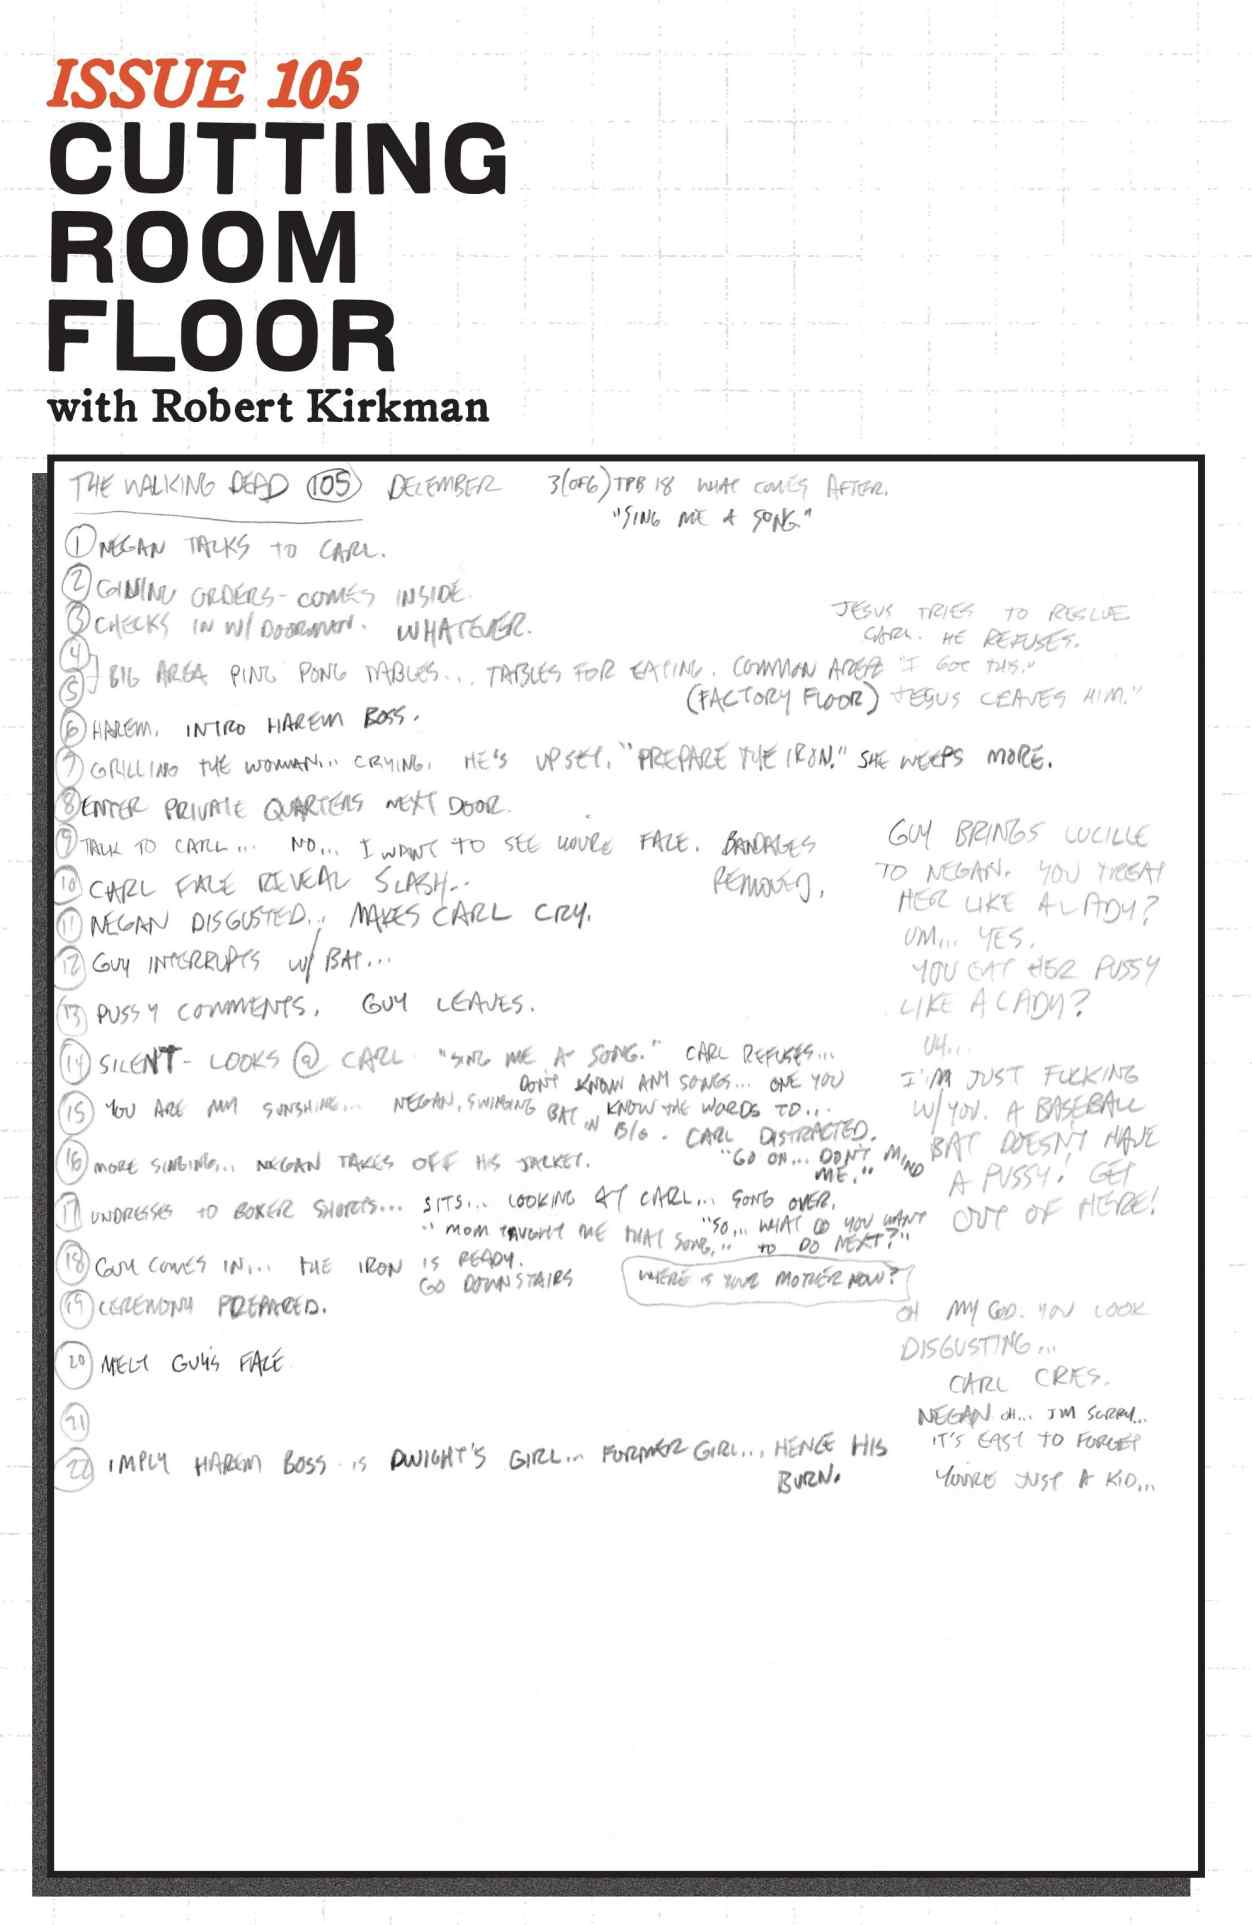 ISSUE 105
CUTTING
ROOM
FLOOR
with Robert Kirkman
THE WALKING DEAD 105 DECEMBER 3(OF6) TPB 18 WHAT COMES AFTER.
"SING ME A SONG"
1 NEGAN TALKS TO CARL.
2 GIVING ORDERS - COMES INSIDE.
3 CHECKS IN W/ DOORMAN. WHATEVER.
4
5 BIG AREA PING PONG TABLES... TABLES FOR EATING. COMMON AREA
(FACTORY FLOOR)
JESUS TRIES TO RESCUE
CARL. HE REFUSES.
"I GOT THIS."
JESUS LEAVES HIM."
6 HAREM. INTRO HAREM BOSS.
7 GRILLING THE WOMAN... CRYING. HE'S UPSET. "PREPARE THE IRON." SHE WEEPS MORE.
8 ENTER PRIVATE QUARTERS NEXT DOOR.
9 TALK TO CARL... NO... I WANT TO SEE YOURE FACE. BANDAGES
REMOVED.
10 CARL FACE REVEAL SPLASH...
11 NEGAN DISGUSTED... MAKES CARL CRY.
12 GUY INTERRUPTS W/ BAT...
13 PUSSY COMMENTS. GUY LEAVES.
14 SILENT - LOOKS @ CARL "SING ME A SONG." CARL REFUSES...
DON'T KNOW ANY SONGS... ONE YOU
KNOW THE WORDS TO...
15 YOU ARE MY SUNSHINE... NEGAN, SWINGING BAT IN
B/G. CARL DISTRACTED.
"GO ON... DON'T MIND
ME."
16 MORE SINGING... NEGAN TAKES OFF HIS JACKET.
17 UNDRESSES TO BOXER SHORTS... SITS... LOOKING AT CARL... SONG OVER.
"SO... WHAT DO YOU WANT
TO DO NEXT?"
"MOM TAUGHT ME THAT SONG."
18 GUY COMES IN... THE IRON IS READY.
GO DOWNSTAIRS
WHERE IS YOUR MOTHER NOW?
19 CEREMONY PREPARED.
20 MELT GUY'S FACE
21
22 IMPLY HAREM BOSS IS DWIGHT'S GIRL... FORMER GIRL... HENCE HIS
BURN.
GUY BRINGS LUCILLE
TO NEGAN. YOU TREAT
HER LIKE A LADY?
UM... YES.
YOU EAT HER PUSSY
LIKE A LADY?
UH...
I'M JUST FUCKING
W/ YOU. A BASEBALL
BAT DOESN'T HAVE
A PUSSY! GET
OUT OF HERE!
OH MY GOD. YOU LOOK
DISGUSTING...
CARL CRIES.
NEGAN OH... I'M SORRY...
IT'S EASY TO FORGET
YOU'RE JUST A KID...